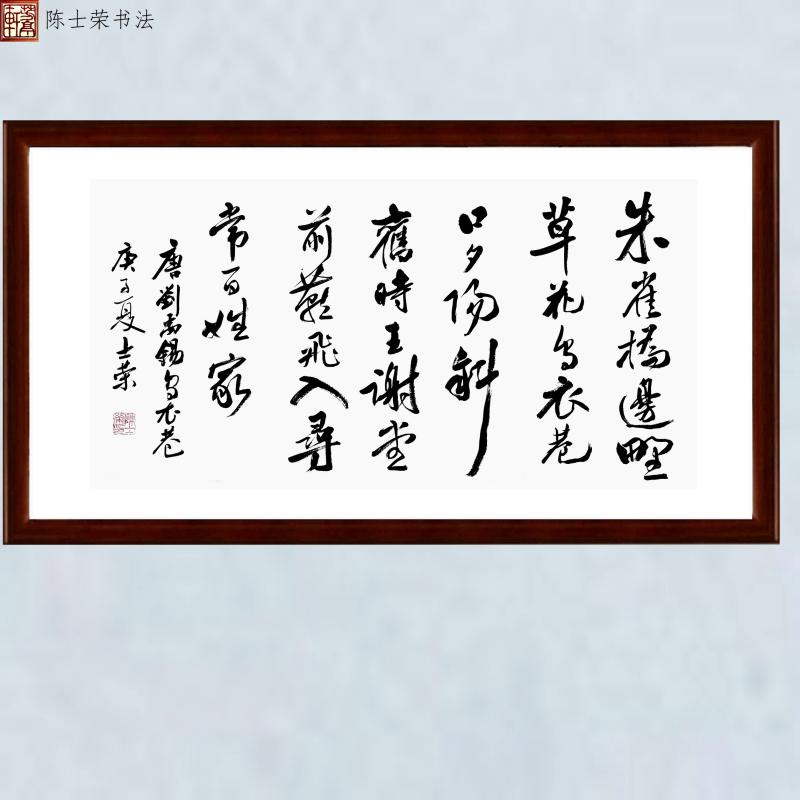 陈士荣书法
朱雀橋邊野
草花烏衣巷
口夕陽斜
舊時王謝堂
前燕飛入尋
常百姓家
唐劉禹錫烏衣巷
庚子夏士荣